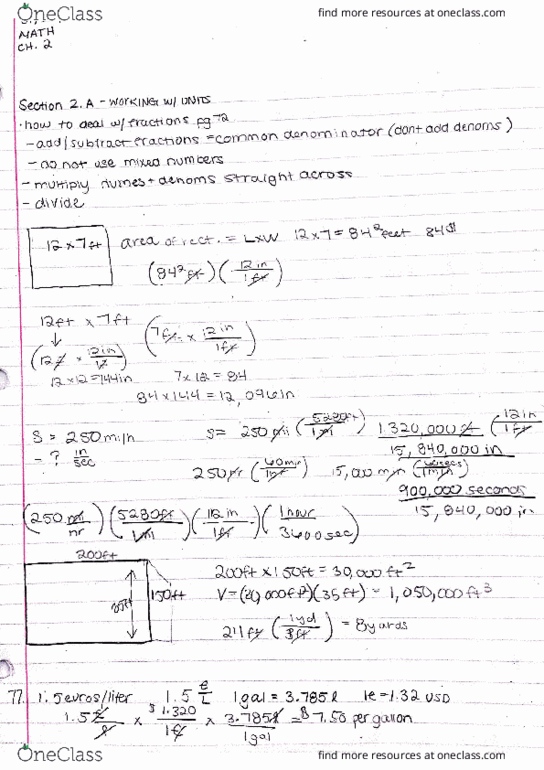 OneClass
find more resources at oneclass.com
MATH
CH. 2
Section 2.A - WORKING W/ UNITS
· how to deal w/ fractions pg 72
- add/subtract fractions = common denominator (dont add denoms)
- do not use mixed numbers
- multiply numes + denoms straight across
- divide
12 x 7 ft
area of rect. = L x W 12 x 7 = 84² feet 84
(84² ft) (12 in / 1 ft)
12 ft x 7 ft
(12 ft x 12 in / 1 ft) (7 ft x 12 in / 1 ft)
12 x 12 = 144 in 7 x 12 = 84
84 x 144 = 12,096 in
S = 250 mi/h
- ? in/sec
S = 250 mi (5280 ft / 1 mi) 1,320,000 ft (12 in / 1 ft)
15,840,000 in
250 hr (60 min / 1 hr) 15,000 min (60 secs / 1 min)
900,000 seconds
15,840,000 in
(250 mi / hr) (5280 ft / 1 mi) (12 in / 1 ft) (1 hour / 3600 sec)
200 ft
35 ft
150 ft
200 ft x 150 ft = 30,000 ft²
V = (30,000 ft²)(35 ft) = 1,050,000 ft³
(1 yd / 3 ft) = 8 yards
77. 1.5 euros/liter 1.5 €/L 1 gal = 3.785 l 1€ = 1.32 USD
1.5 €/l x $1.320 / 1€ x 3.785 l / 1 gal = $7.50 per gallon
OneClass
find more resources at oneclass.com